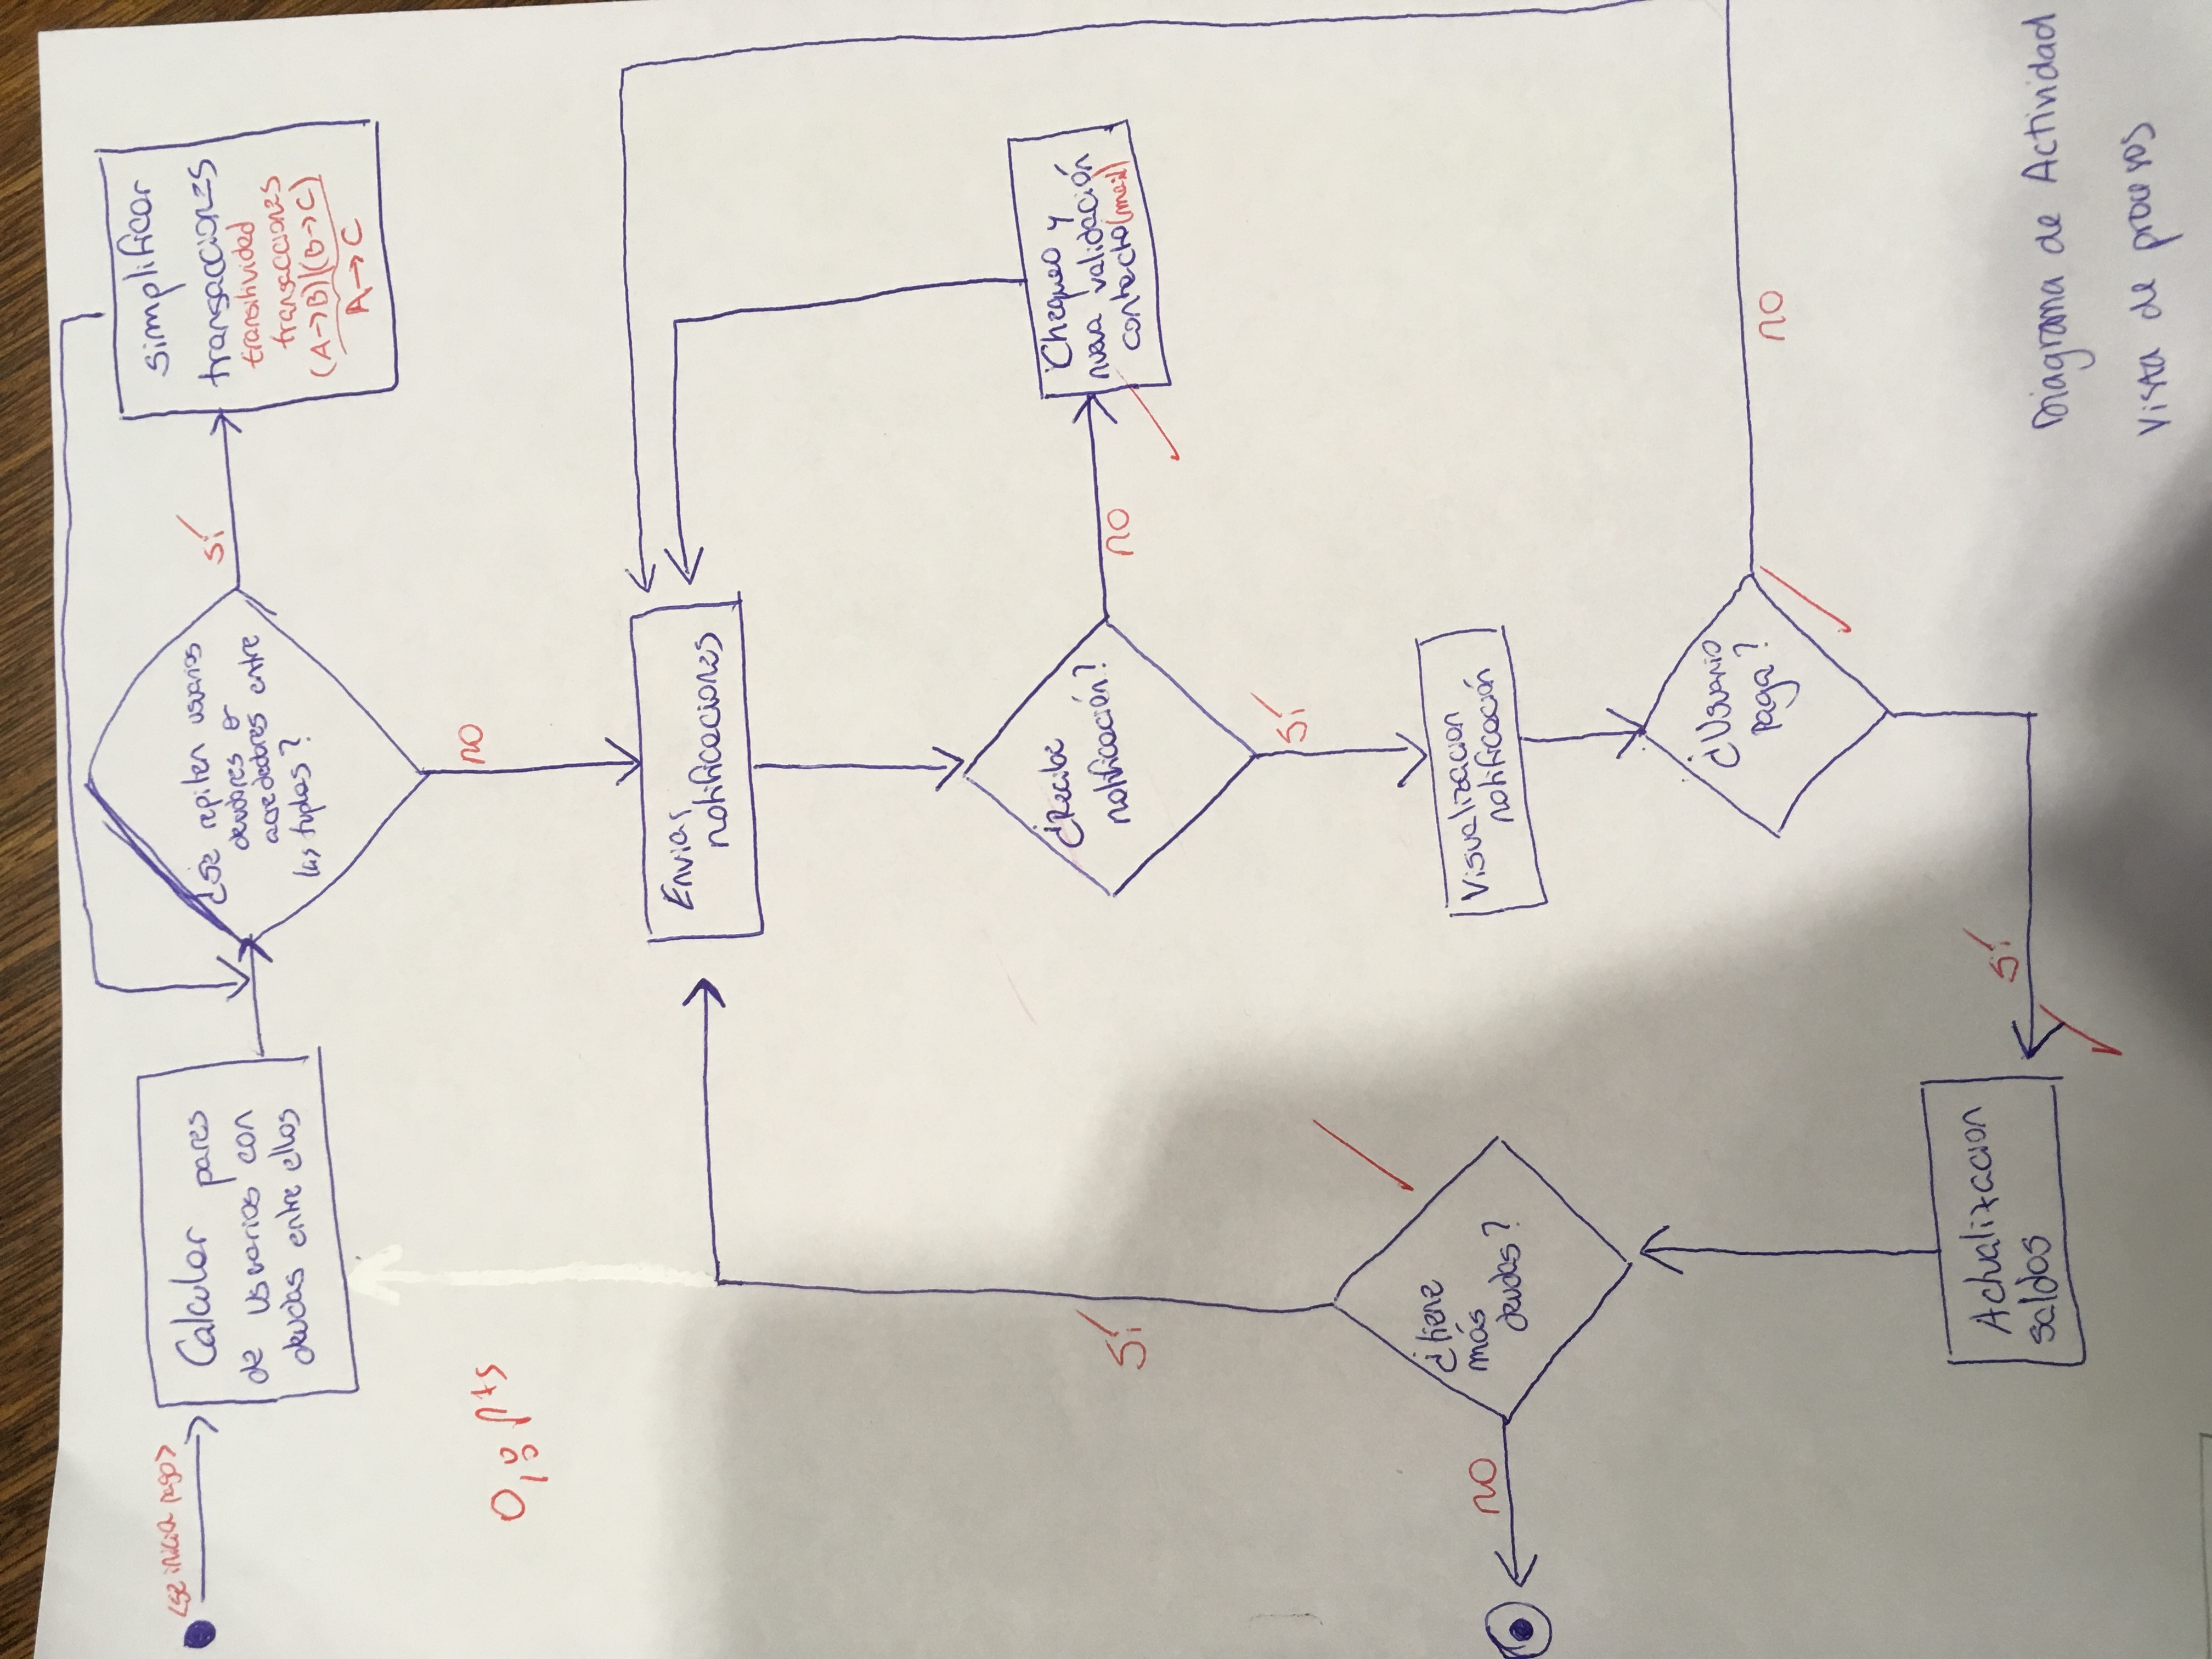 <se inicia pago>
Calcular pares
de usuarios con
deudas entre ellos
¿se repiten usuarios
deudores o
acreedores entre
las tuplas?
sí
simplificar
transacciones
transitividad
transacciones
(A→B)|(B→C)
A→C
no
0,8 pts
Enviar
notificaciones
¿Recibe
notificación?
no
Chequeo y
nueva validación
contacto (mail)
sí
sí
Visualizacion
notificación
¿tiene
más
deudas?
no
¿Usuario
paga?
no
sí
Actualizacion
saldos
Diagrama de Actividad
Vista de procesos